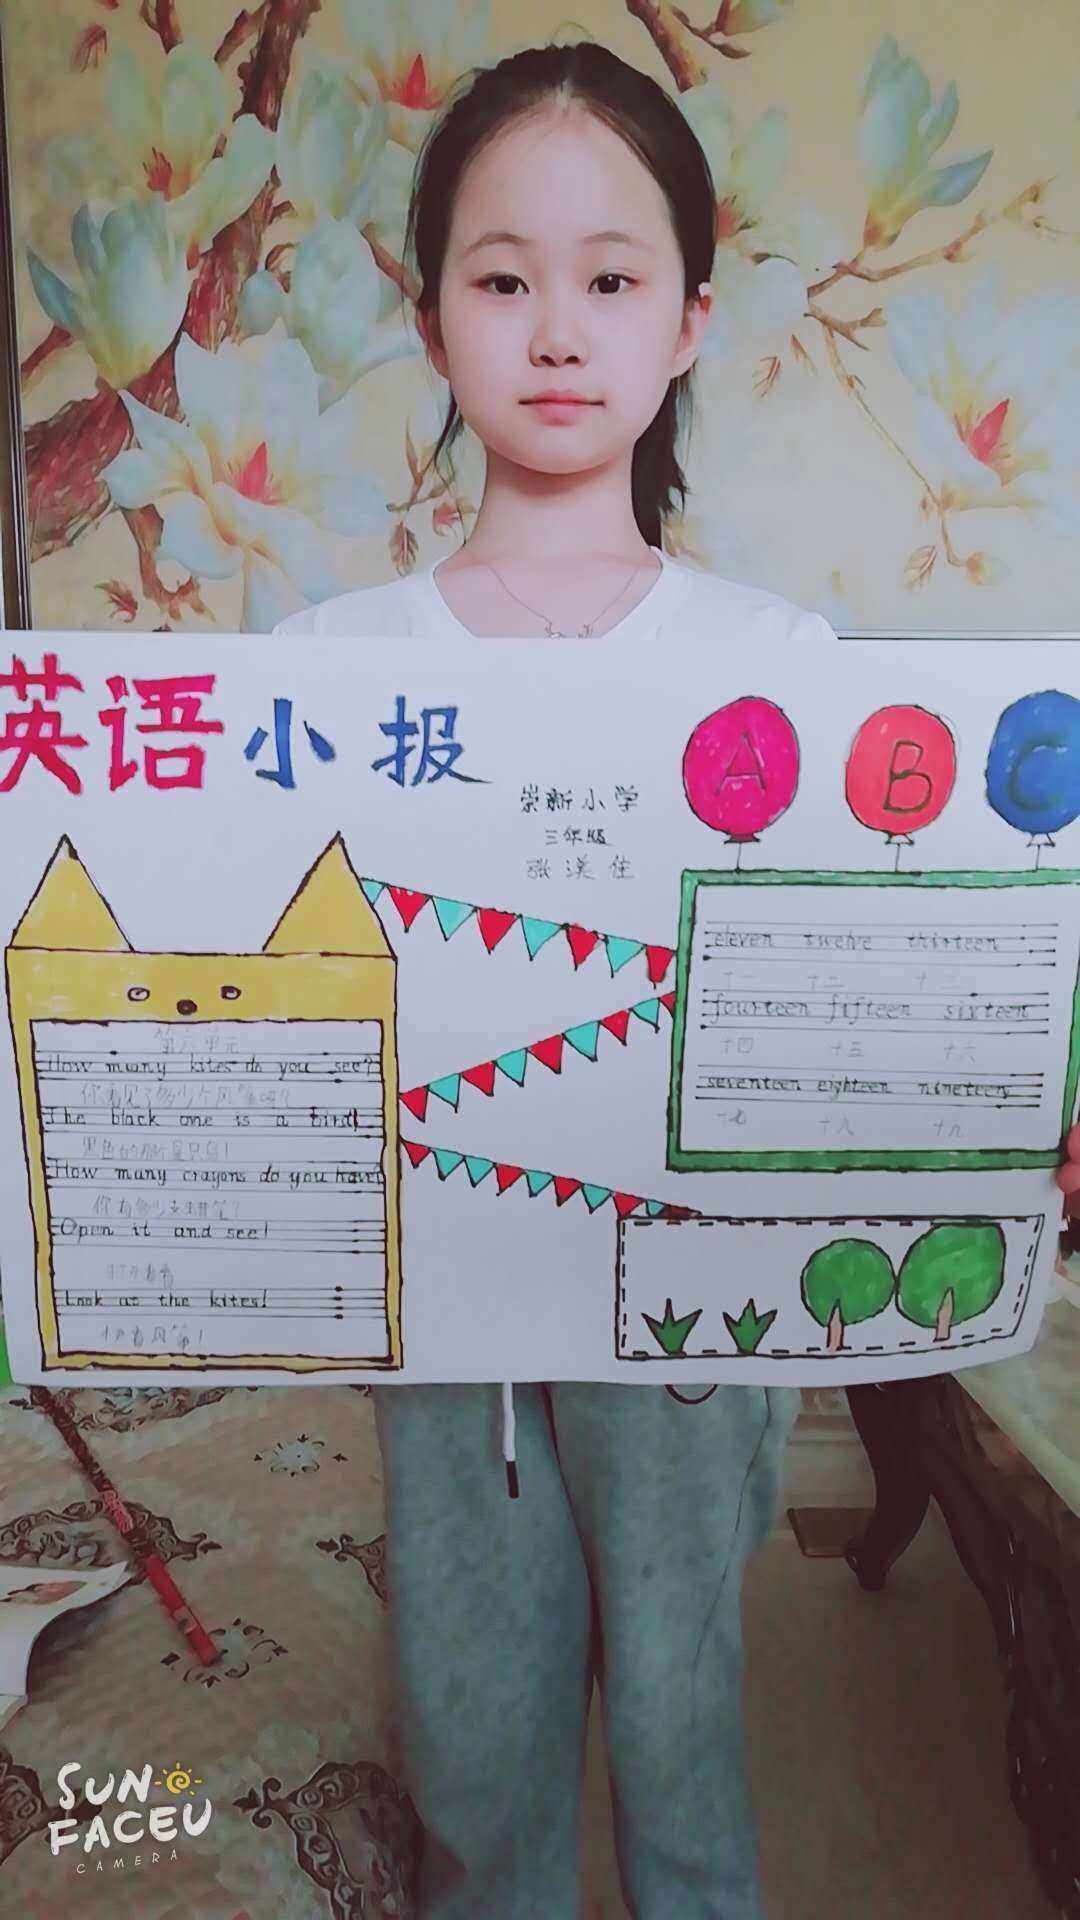 英语小报
崇新小学
三年级
A B C
第六单元
How many kites do you see?
你看见了多少个风筝呀?
The black one is a bird!
黑色的那个是只鸟!
How many crayons do you have?
你有多少支蜡笔?
Open it and see!
打开看看
Look at the kites!
看风筝!
eleven twelve thirteen
十一 十二 十三
fourteen fifteen sixteen
十四 十五 十六
seventeen eighteen nineteen
十七 十八 十九
SUN
FACEU
CAMERA